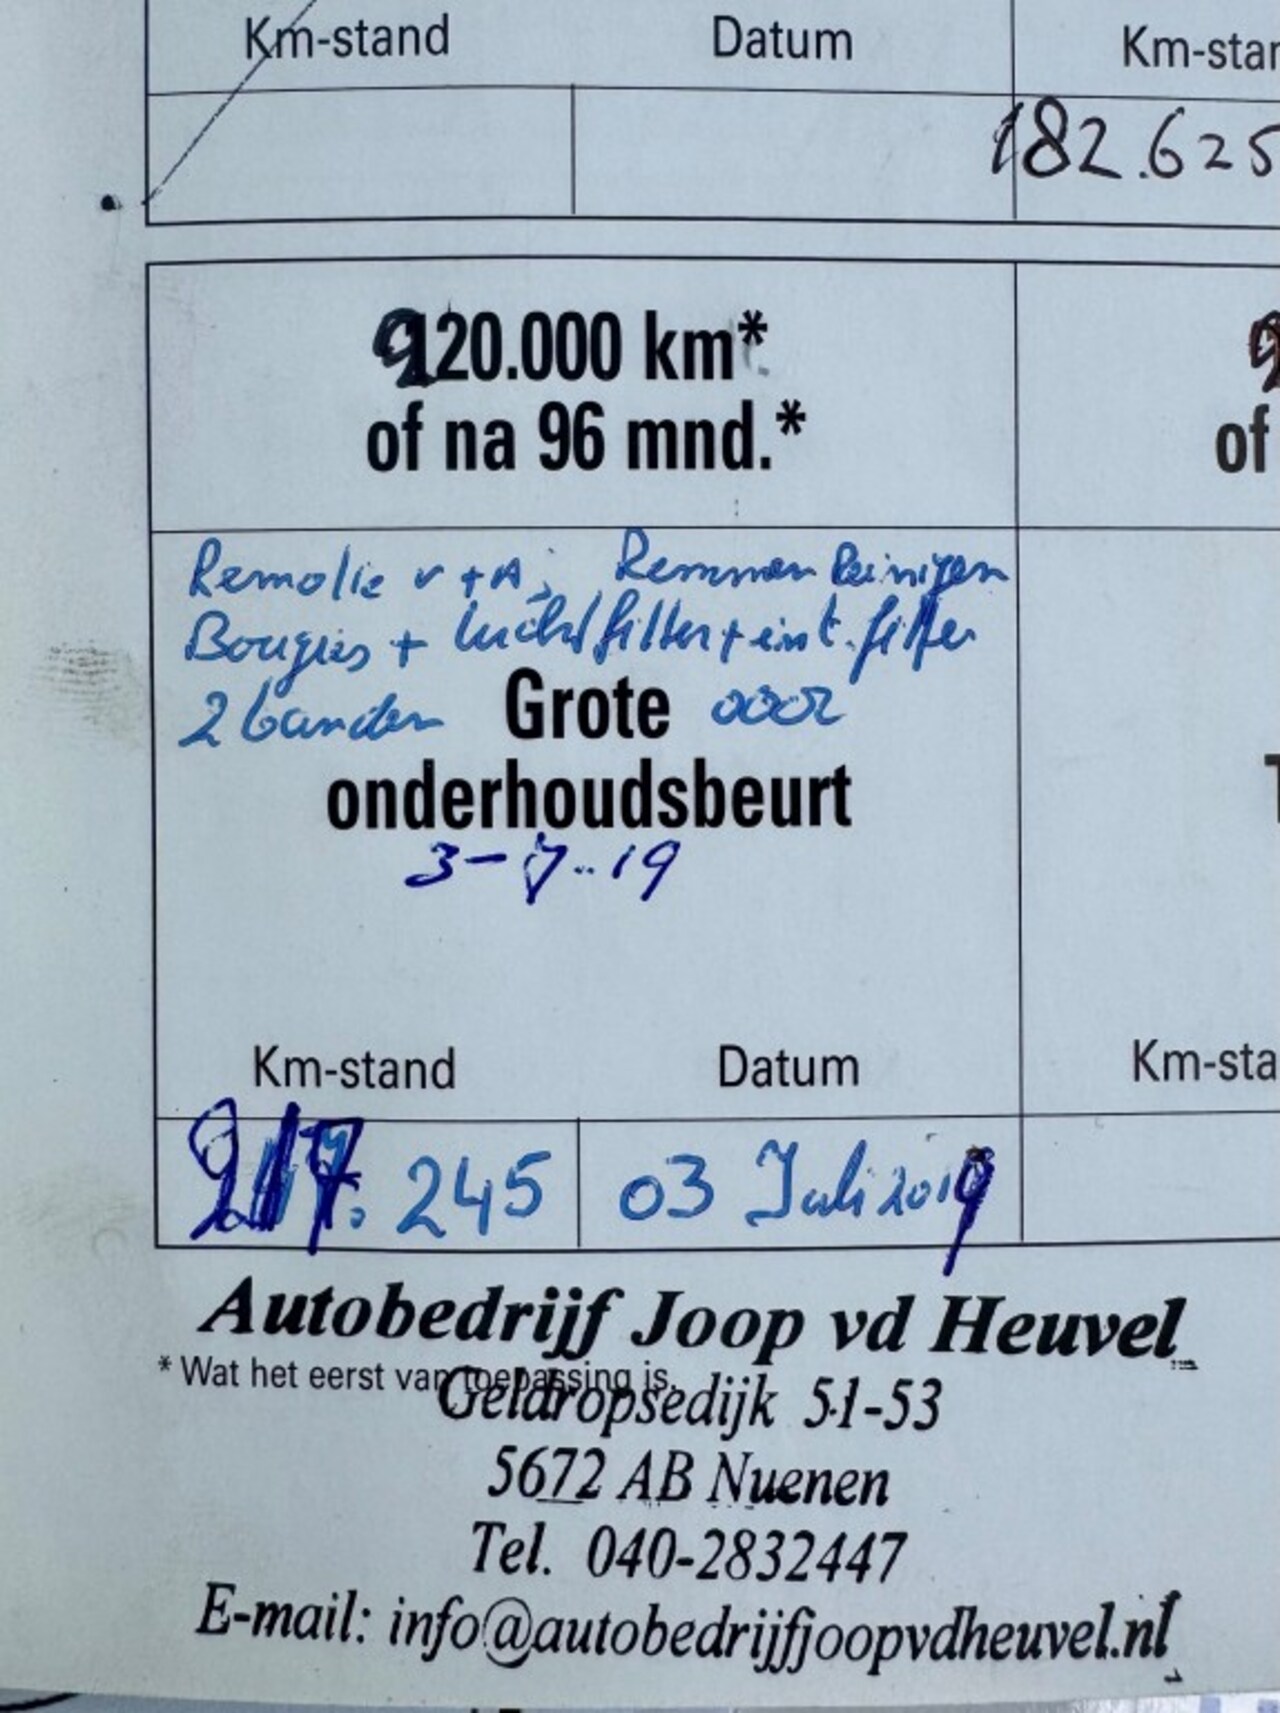 Km-stand Datum Km-star
182.625
220.000 km*
of na 96 mnd.* of
Remolie v + A; Remmen Reinigen
Bougies + luchtfilter + int. filter
2 banden Grote voor
onderhoudsbeurt
3-7-19
Km-stand Datum Km-sta
217.245 03 Juli 2019
Autobedrijf Joop vd Heuvel
* Wat het eerst van toepassing is.
Geldropsedijk 51-53
5672 AB Nuenen
Tel. 040-2832447
E-mail: info@autobedrijfjoopvdheuvel.nl